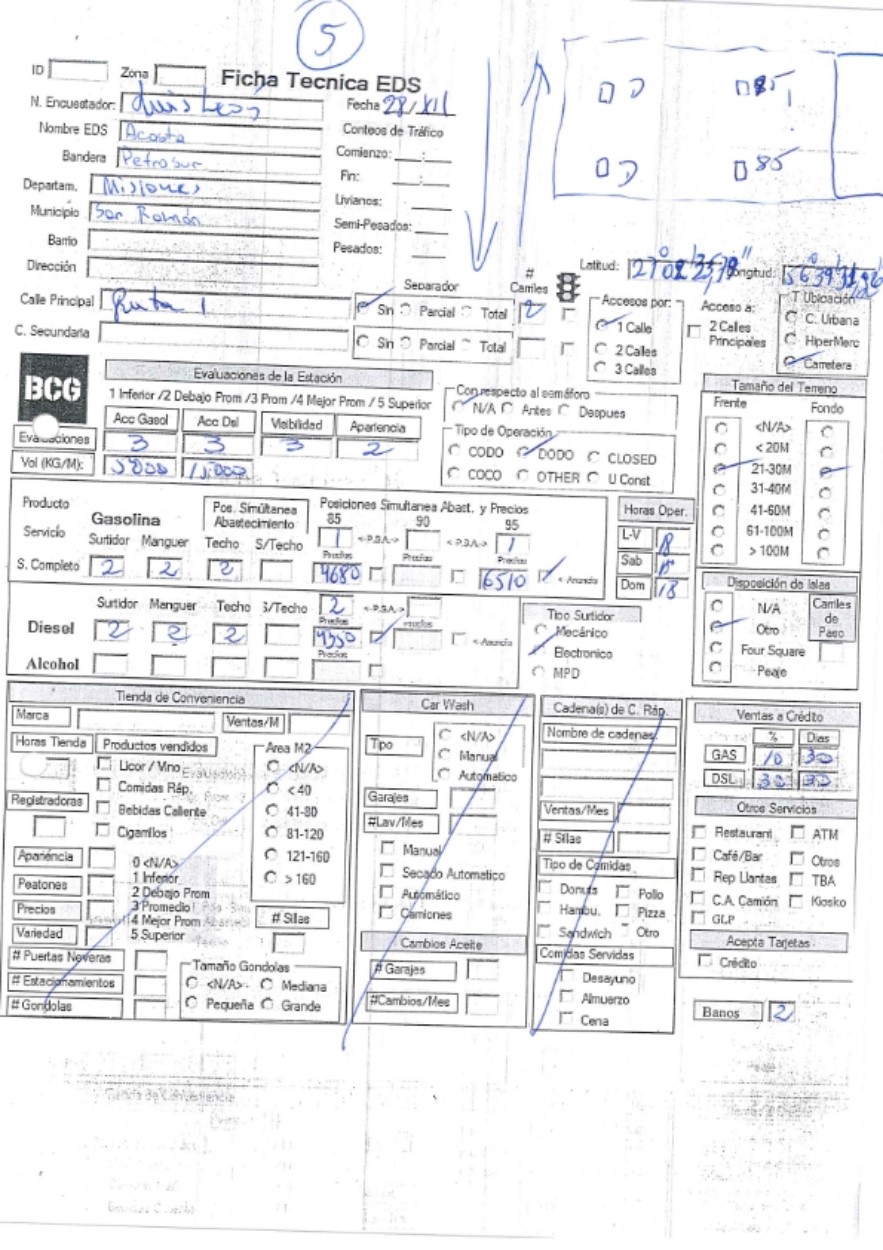 5
ID Zona Ficha Tecnica EDS
N. Encuestador: Luis Leos Fecha 28/XII
Nombre EDS Acosta Conteos de Tráfico
Bandera Petrosur Comienzo: __:__
Departam. Misiones Fin: __:__
Municipio San Ramón Livianos:
Barrio Semi-Pesados:
Dirección Pesados:
D D 85
D D 85
Latitud: Longitud:
Calle Principal Ruta 1 Separador Sin Parcial Total # Carriles 2
C. Secundaria Sin Parcial Total
Accesos por:
1 Calle
2 Calles
3 Calles
Acceso a:
2 Calles Principales
T Ubicación
C. Urbana
HiperMerc
Carretera
BCG
Evaluaciones de la Estación
1 Inferior /2 Debajo Prom /3 Prom /4 Mejor Prom / 5 Superior
Acc Gasol Acc Dsl Visibilidad Apariencia
Evaluaciones 3 3 3 2
Vol (KG/M): 5000 15.000
Con respecto al semáforo
N/A Antes Despues
Tipo de Operación
CODO DODO CLOSED
COCO OTHER U Const
Tamaño del Terreno
Frente Fondo
<N/A>
< 20M
21-30M
31-40M
41-60M
61-100M
> 100M
Producto Pos. Simúltanea Abastecimiento Posiciones Simultanea Abast. y Precios
Servicio Gasolina 85 90 95
Surtidor Manguer Techo S/Techo 1 <-P.S.A.-> <-P.S.A.-> 1
S. Completo 2 2 2 Precios 4680 Precios Precios 6510 <- Anuncia
Horas Oper.
L-V 18
Sab 18
Dom 18
Surtidor Manguer Techo S/Techo 2 <-P.S.A.->
Diesel 2 2 2 Precios Precios <- Anuncia
Alcohol Precios
Tipo Surtidor
Mecánico
Electronico
MPD
Disposición de Islas
N/A
Otro
Four Square
Peaje
Carriles de Paso
Tienda de Conveniencia
Marca Ventas/M
Horas Tienda Productos vendidos Area M2
Licor / Vino <N/A>
Comidas Ráp. < 40
Registradoras Bebidas Caliente 41-80
Cigarrillos 81-120
Apariéncia 0 <N/A> 121-160
Peatones 1 Inferior > 160
Precios 2 Debajo Prom
Variedad 3 Promedio
4 Mejor Prom # Sillas
5 Superior
# Puertas Neveras Tamaño Gondolas
# Estacionamientos <N/A> Mediana
# Gondolas Pequeña Grande
Car Wash
Tipo <N/A>
Manual
Automatico
Garajes
#Lav/Mes
Manual
Secado Automatico
Automático
Camiones
Cambios Aceite
# Garajes
#Cambios/Mes
Cadena(s) de C. Ráp.
Nombre de cadenas
Ventas/Mes
# Sillas
Tipo de Comidas
Donuts Pollo
Hambu. Pizza
Sandwich Otro
Comidas Servidas
Desayuno
Almuerzo
Cena
Ventas a Crédito
% Dias
GAS 10 30
DSL 30 30
Otros Servicios
Restaurant ATM
Café/Bar Otros
Rep Llantas TBA
C.A. Camión Kiosko
GLP
Acepta Tarjetas
Crédito
Banos 2